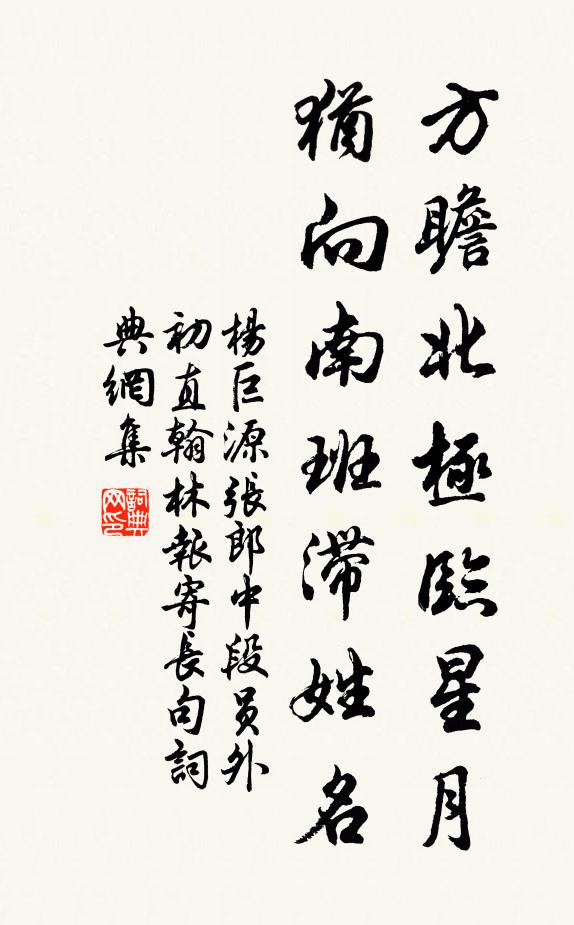 方瞻北極臨星月
猶向南班滯姓名
楊巨源張郎中段員外
初直翰林報寄長句詞
典網集
詞典网印